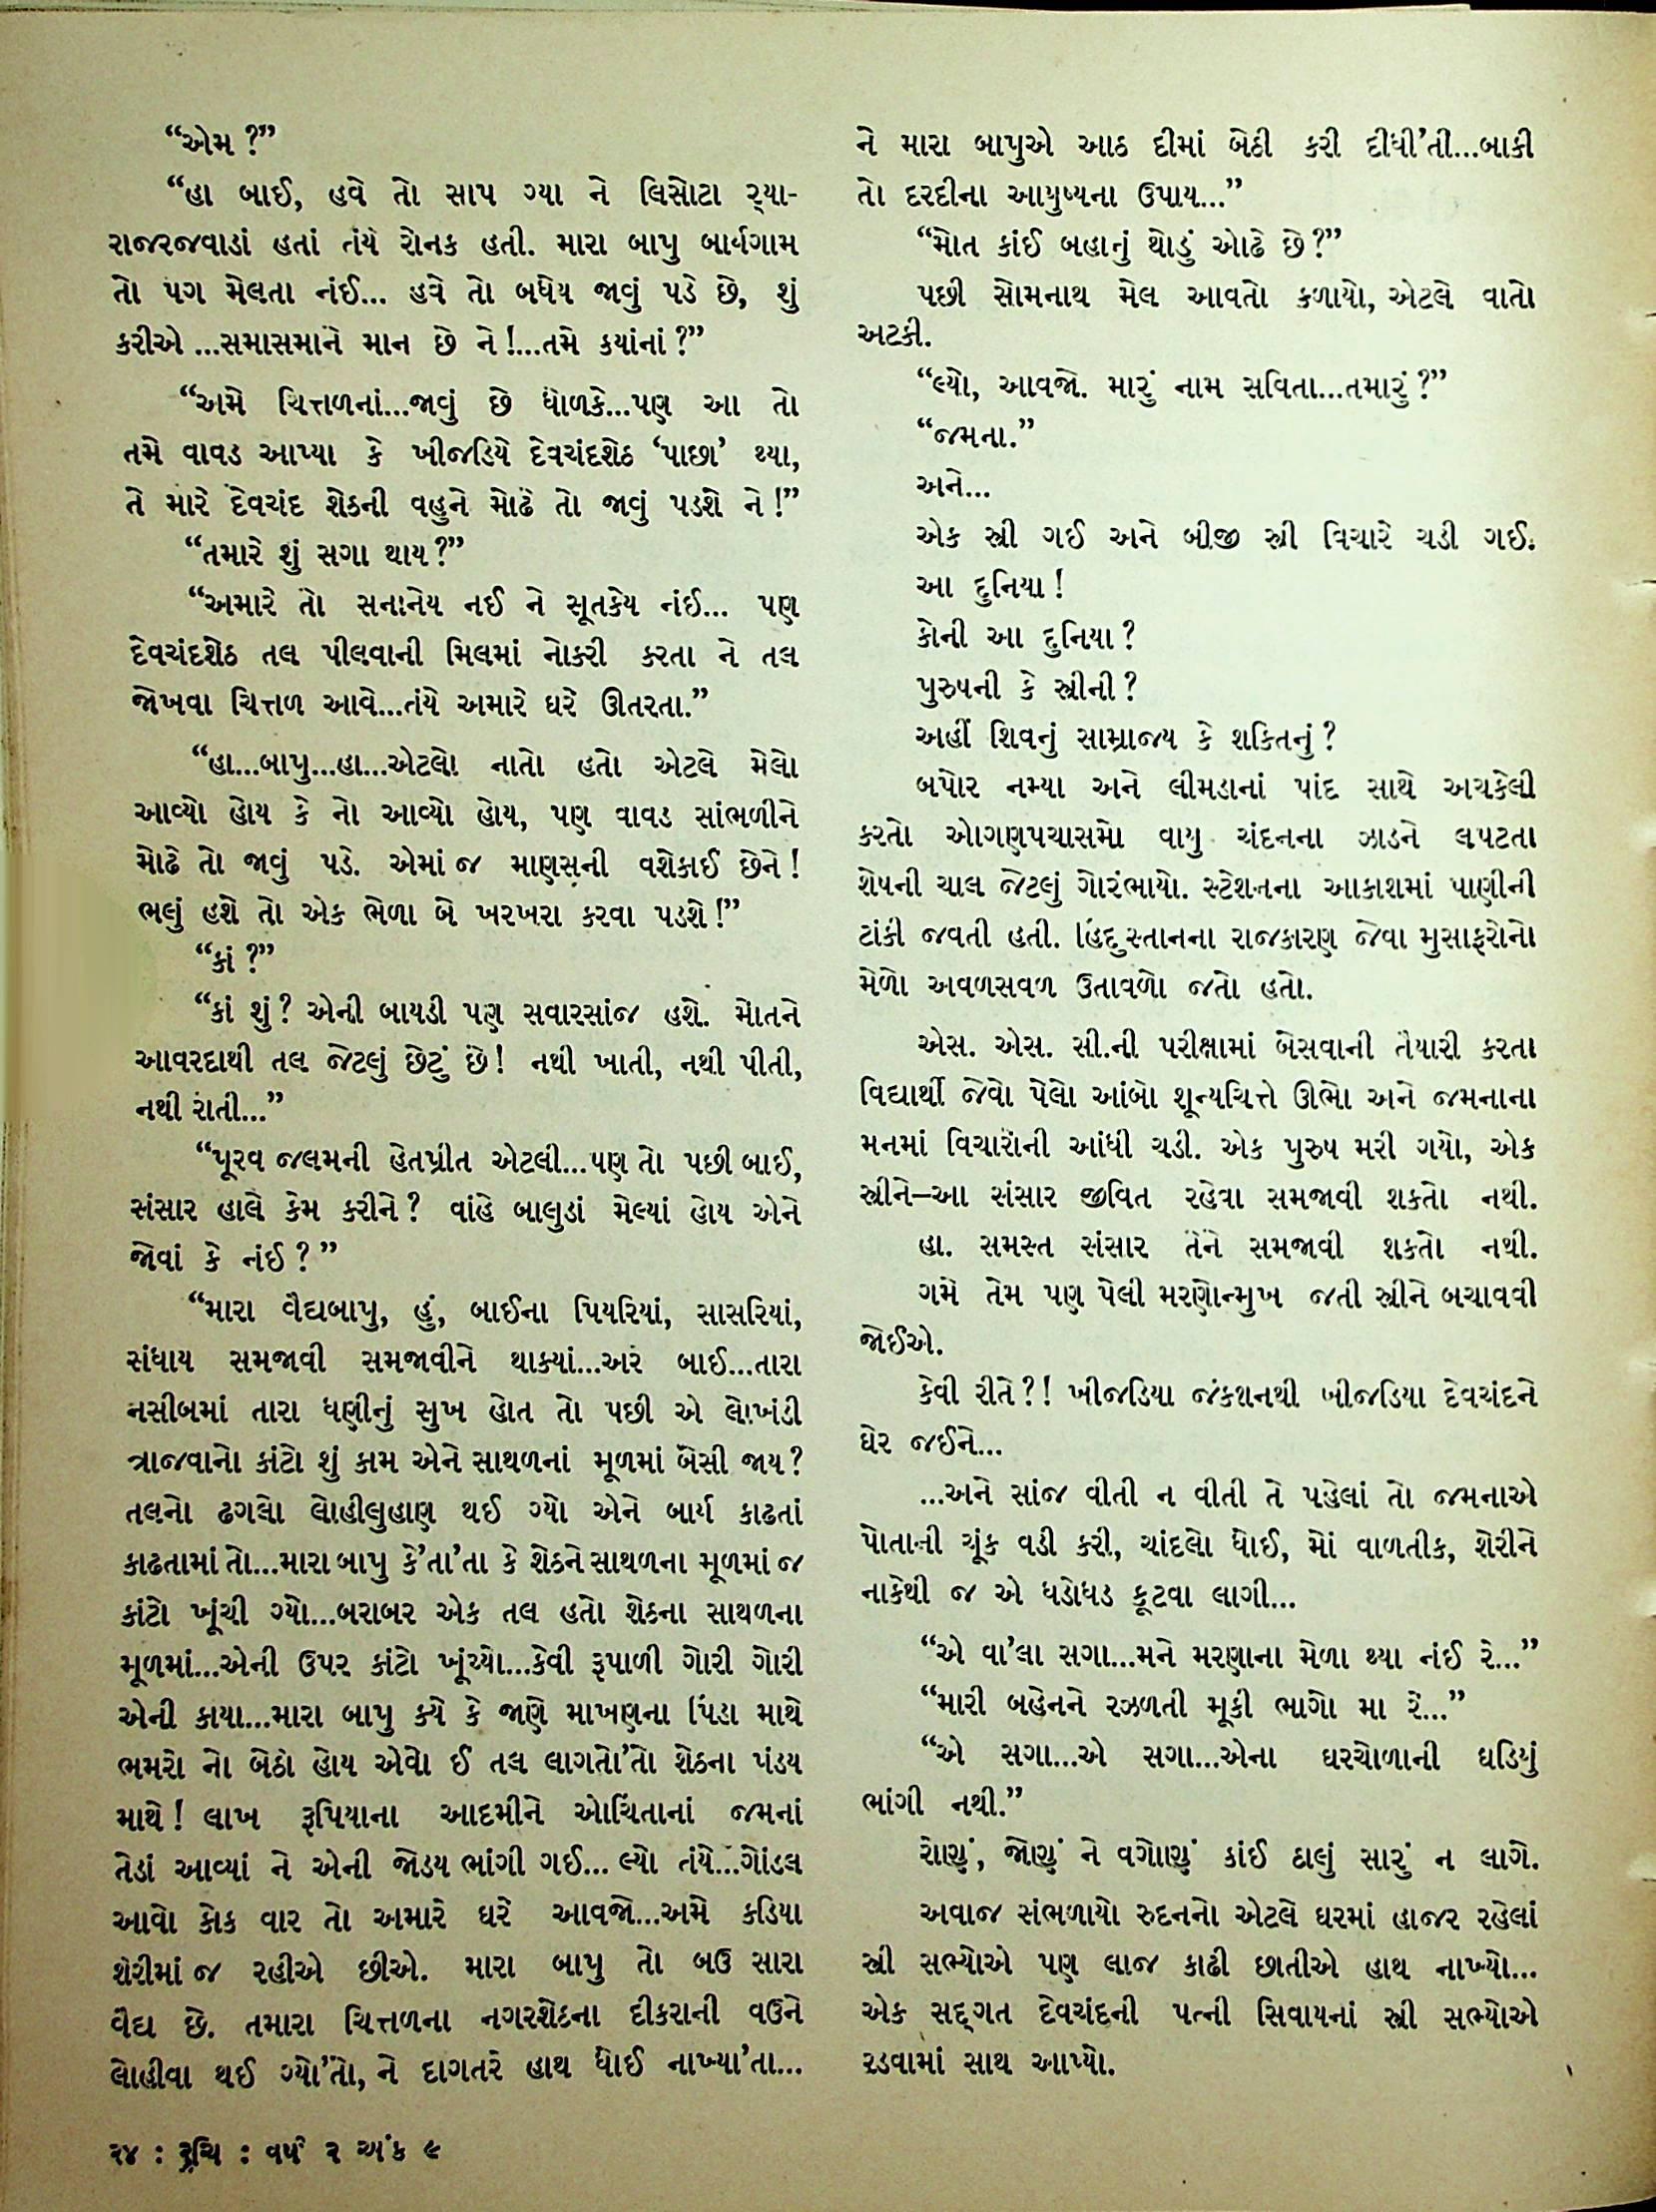 “એમ ?”
“હા બાઈ, હવે તો સાપ ગ્યા ને લિસોટા ર્‌યા-
રાજરજવાડાં હતાં તંયે રોનક હતી. મારા બાપુ બાર્યગામ
તો પગ મેલતા નંઈ... હવે તો બધેય જાવું પડે છે, શું
કરીએ ...સમાસમાને માન છે ને !...તમે કયાંનાં ?”
“અમે ચિત્તળનાં...જાવું છે ધોળકે...પણ આ તો
તમે વાવડ આપ્યા કે ખીજડિયે દેવચંદશેઠ ‘પાછા’ થ્યા,
તે મારે દેવચંદ શેઠની વહુને મોઢે તો જાવું પડશે ને !”
“તમારે શું સગા થાય ?”
“અમારે તો સનાનેય નઈ ને સૂતકેય નંઈ... પણ
દેવચંદશેઠ તલ પીલવાની મિલમાં નોકરી કરતા ને તલ
જોખવા ચિત્તળ આવે...તંયે અમારે ઘરે ઊતરતા.”
“હા...બાપુ...હા...એટલો નાતો હતો એટલે મેલો
આવ્યો હોય કે નો આવ્યો હોય, પણ વાવડ સાંભળીને
મોઢે તો જાવું પડે. એમાં જ માણસની વશેકાઈ છેને !
ભલું હશે તો એક ભેળા બે ખરખરા કરવા પડશે !”
“કાં ?”
“કાં શું ? એની બાયડી પણ સવારસાંજ હશે. મોતને
આવરદાથી તલ જેટલું છેટું છે ! નથી ખાતી, નથી પીતી,
નથી રોતી...”
“પૂરવ જલમની હેતપ્રીત એટલી...પણ તો પછી બાઈ,
સંસાર હાલે કેમ કરીને ? વાંહે બાલુડાં મેલ્યાં હોય એને
જોવાં કે નંઈ ? ”
“મારા વૈદ્યબાપુ, હું, બાઈના પિયરિયાં, સાસરિયાં,
સંધાય સમજાવી સમજાવીને થાક્યાં...અરે બાઈ...તારા
નસીબમાં તારા ધણીનું સુખ હોત તો પછી એ લોખંડી
ત્રાજવાનો કાંટો શું કામ એને સાથળનાં મૂળમાં બેસી જાય ?
તલનો ઢગલો લોહીલુહાણ થઈ ગ્યો એને બાર્ય કાઢતાં
કાઢતામાં તો...મારા બાપુ કે’તા’તા કે શેઠને સાથળના મૂળમાં જ
કાંટો ખૂંચી ગ્યો...બરાબર એક તલ હતો શેઠના સાથળના
મૂળમાં...એની ઉપર કાંટો ખૂંચ્યો...કેવી રૂપાળી ગોરી ગોરી
એની કાયા...મારા બાપુ ક્યે કે જાણે માખણના પિંડા માથે
ભમરો નો બેઠો હોય એવો ઈ તલ લાગતો’તો શેઠના પંડય
માથે ! લાખ રૂપિયાના આદમીને ઓચિંતાનાં જમનાં
તેડાં આવ્યાં ને એની જોડય ભાંગી ગઈ... લ્યો તંયે...ગોંડલ
આવો કોક વાર તો અમારે ઘરે આવજો...અમે કડિયા
શેરીમાં જ રહીએ છીએ. મારા બાપુ તો બઉ સારા
વૈદ્ય છે. તમારા ચિત્તળના નગરશેઠના દીકરાની વઉને
લોહીવા થઈ ગ્યો’તો, ને દાગતરે હાથ ધોઈ નાખ્યા’તા...
ને મારા બાપુએ આઠ દીમાં બેઠી કરી દીધી’તી...બાકી
તો દરદીના આયુષ્યના ઉપાય...”
“મોત કાંઈ બહાનું થોડું ઓઢે છે ?”
પછી સોમનાથ મેલ આવતો કળાયો, એટલે વાતો
અટકી.
“લ્યો, આવજો. મારું નામ સવિતા...તમારું ?”
“જમના.”
અને...
એક સ્ત્રી ગઈ અને બીજી સ્ત્રી વિચારે ચડી ગઈ.
આ દુનિયા !
કોની આ દુનિયા ?
પુરુષની કે સ્ત્રીની ?
અહીં શિવનું સામ્રાજ્ય કે શકિતનું ?
બપોર નમ્યા અને લીમડાનાં પાંદ સાથે અચકેલી
કરતો ઓગણપચાસમો વાયુ ચંદનના ઝાડને લપટતા
શેષની ચાલ જેટલું ગોરંભાયો. સ્ટેશનના આકાશમાં પાણીની
ટાંકી જવતી હતી. હિંદુસ્તાનના રાજકારણ જેવા મુસાફરોનો
મેળો અવળસવળ ઉતાવળો જતો હતો.
એસ. એસ. સી.ની પરીક્ષામાં બેસવાની તૈયારી કરતા
વિદ્યાર્થી જેવો પેલો આંબો શૂન્યચિત્તે ઊભો અને જમનાના
મનમાં વિચારોની આંધી ચડી. એક પુરુષ મરી ગયો, એક
સ્ત્રીને–આ સંસાર જીવિત રહેવા સમજાવી શકતો નથી.
હા. સમસ્ત સંસાર તેને સમજાવી શકતો નથી.
ગમે તેમ પણ પેલી મરણોન્મુખ જતી સ્ત્રીને બચાવવી
જોઈએ.
કેવી રીતે ?! ખીજડિયા જંકશનથી ખીજડિયા દેવચંદને
ઘેર જઈને...
...અને સાંજ વીતી ન વીતી તે પહેલાં તો જમનાએ
પોતાની ચૂંક વડી કરી, ચાંદલો ધોઈ, મોં વાળતીક, શેરીને
નાકેથી જ એ ધડોધડ કૂટવા લાગી...
“એ વા’લા સગા...મને મરણાના મેળા થ્યા નંઈ રે...”
“મારી બહેનને રઝળતી મૂકી ભાગો મા રે...”
“એ સગા...એ સગા...એના ઘરચોળાની ઘડિયું
ભાંગી નથી.”
રોણું, જોણું ને વગોણું કાંઈ ઠાલું સારું ન લાગે.
અવાજ સંભળાયો રુદનનો એટલે ઘરમાં હાજર રહેલાં
સ્ત્રી સભ્યોએ પણ લાજ કાઢી છાતીએ હાથ નાખ્યો...
એક સદ્‌ગત દેવચંદની પત્ની સિવાયનાં સ્ત્રી સભ્યોએ
રડવામાં સાથ આપ્યો.
૨૪ : રુચિ : વર્ષ ૨ અંક ૯